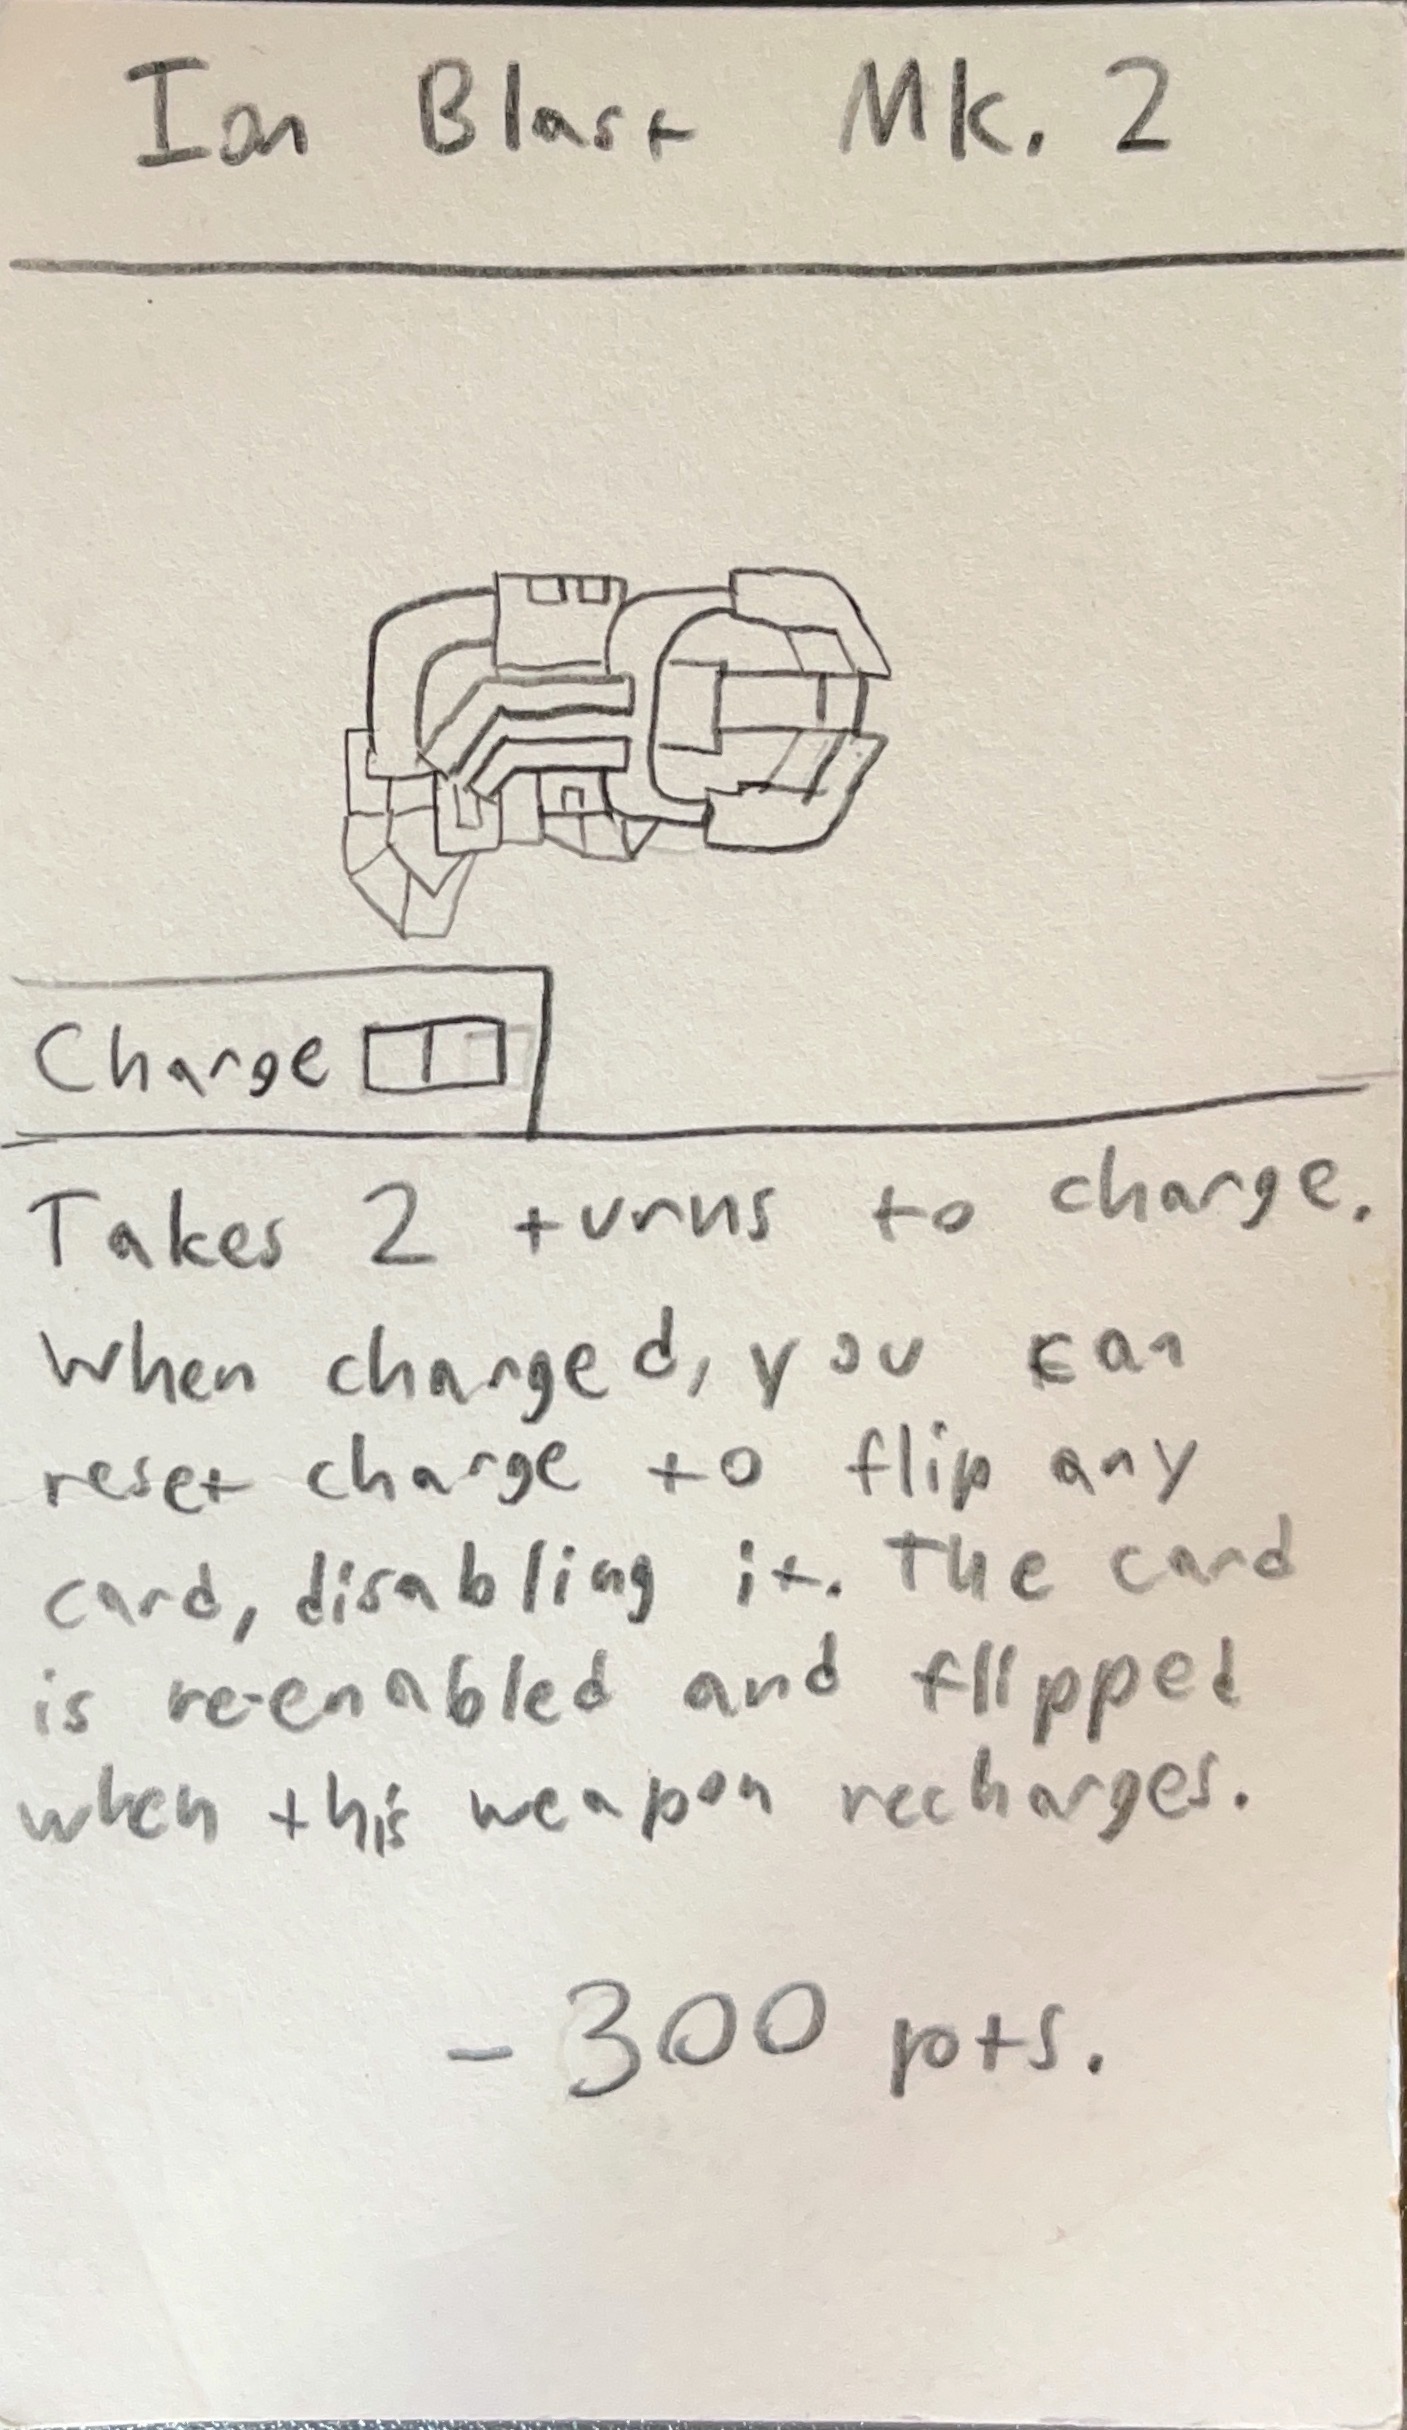 Ion Blast Mk. 2
Charge
Takes 2 turns to charge.
When charged, you can
reset charge to flip any
card, disabling it. The card
is re-enabled and flipped
when this weapon recharges.
- 300 pts.